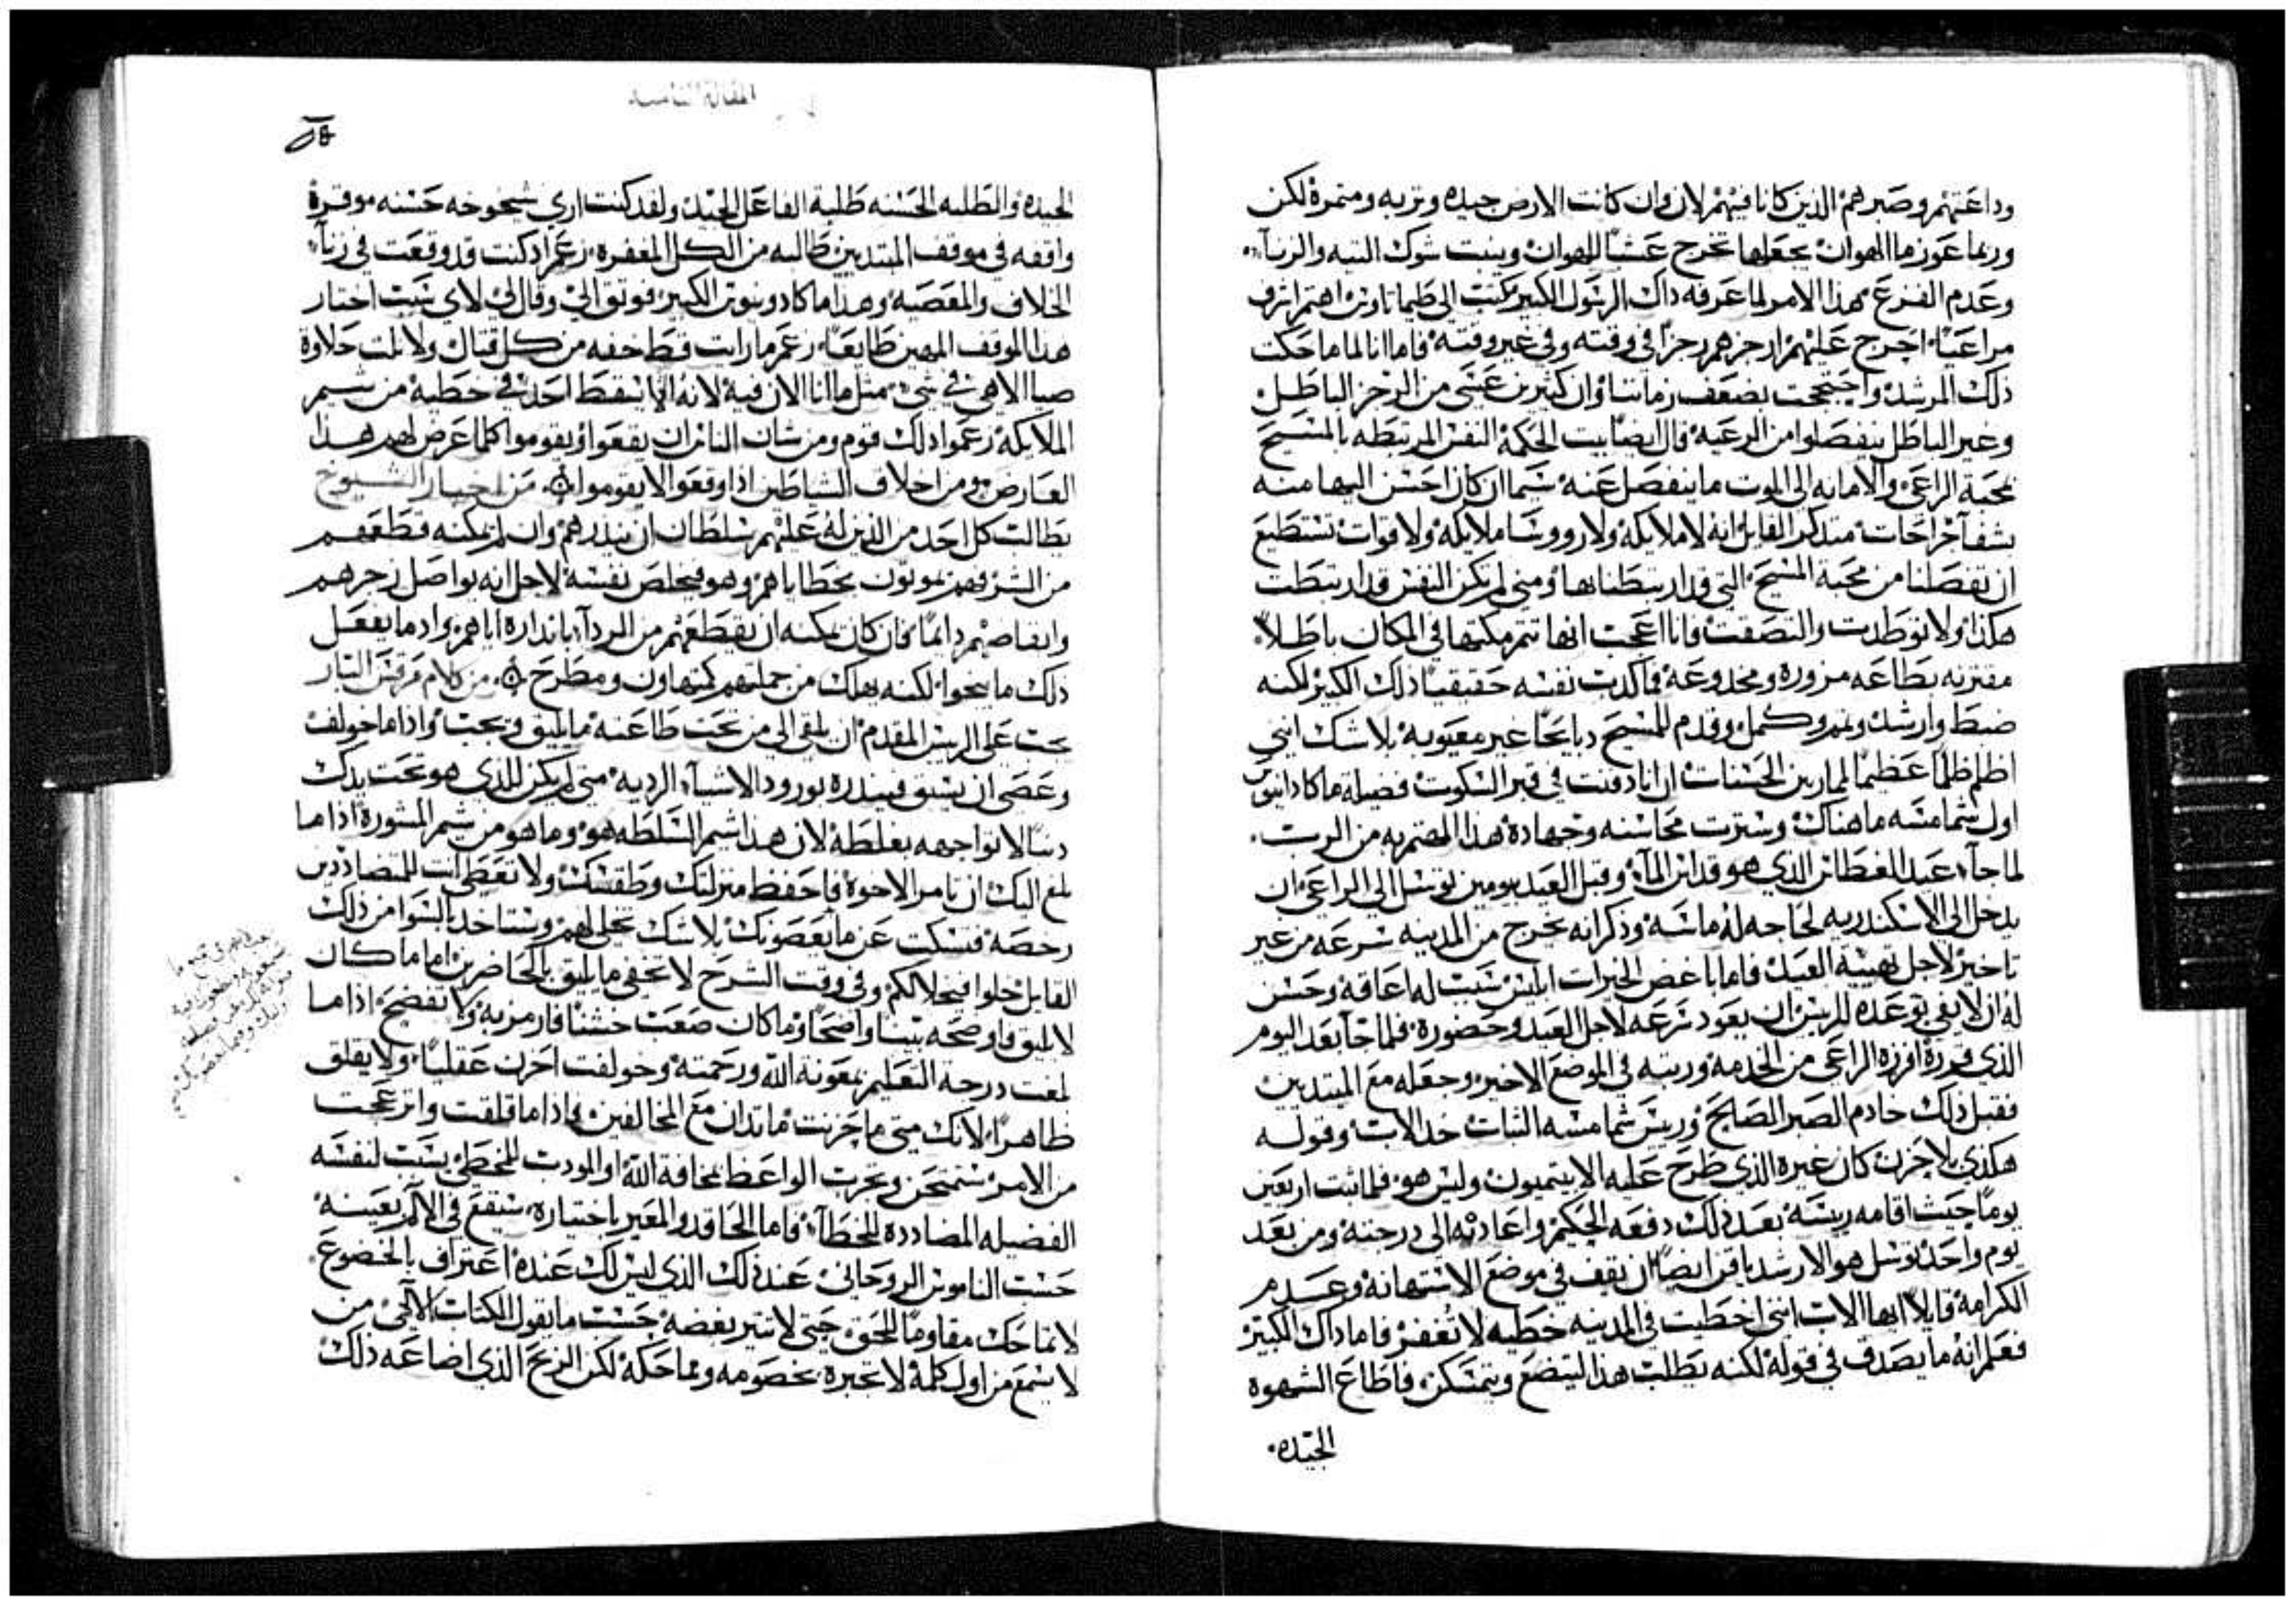 وداعتهم وصبرهم الذين كانا فيهم لان وان كانت الارض جيده وتربه ومتمره لكن
وربما عوزها الهوان يجعلها تخرج عشبًا للهوان وينبت شوك التيه والزنآ
وعدم الفزع هذا الامر لما عرفه داك الرسول الكبير كتب الى طيماتاوس اهتم ازجر
ذلك المرشد واحتججت بضعف زماننا وان كثيرين عتى من الزجز الباطل
وغير الباطل ينفصلوا من الرعيه قال ايضا بيت الحكمة النفس المرتبطه بالمسيح
بمحبة الراعي والامانه الى الموت ما ينفصل عنه سيما ان كان احسن اليها منه
بشفآ جراحات متدكر القايل انه لا ملايكه ولا رووسا ملايكه ولا قوات تستطيع
ان تفصلنا من محبة المسيح التي قد ارتبطنا بها ومتى لم تكن النفس قد ارتبطت
هكذا ولا توطدت والتصقت فانا اعجب انها تتم مكتها في المكان باطلا
مقترنه بطاعه مزوره ومخدوعه فما كدبت نفسه حقيقيا ذلك الكبير لكنه
ضبط وارشد ونمر وكمل وقدم للمسيح دبايحًا غير معيوبه بلا شك انني
اظلم ظلمًا عظيمًا لممارسن الحسنات ان انا دفنت في قبر السكوت فضيله ماكادانيوس
اول شمامسه ماهناك وسترت محاسنه وجهاده هذا المهتم به من الرب
لما جآ عيد الغطاس الذي هو قداس المآ وقبل العيد بيومين توسل الى الراعي ان
يدخل الى الاسكندريه لحاجه له ماسّه وذكر انه يخرج من المدينه سرعه من غير
تاخير لاجل تهيئه العيد فاما باغض الخيرات ابليس سبب له اعاقه وحسن
له ان لا يفي بوعده للريس ان يعود سرعه لاجل العيد وحضوره فلما جآ بعد اليوم
الذي قررة افرزه الراعي من الخدمه ورتبه في الموضع الاخير وجعله مع المبتدين
فقبل ذلك خادم الصبر الصالح وريس شمامسه الثبات خد الات وقوله
هكذي بلا حزن كان غيره الذي طرح عليه الايتيميون وليس هو فلما ثبت اربعين
يومًا حيث اقامه ريسه بعد ذلك دفعه الحكيم واعادته الى درجته ومن بعد
يوم واحد توسل هو الارشدياقن ايضًا ان يقف في موضع الاستهانه وعدم
الكرامه قايلًا ايها الاب انني اخطيت في المدينه خطيه لا تغفر فاما داك الكبير
فعلم انه ما يصدق في قوله لكنه يطلب هذا ليتضع ويتمسكن فاطاع الشهوة
الجيده
المقالة الثامنه
الجيده والطلبه الحسنه طلبة الفاعل الجيد ولقد كنت اري شيخوخه حسنه موقرة
واقفه في موقف المبتدين طالبه من الكل المغفره زعم اد كنت قد وقعت في زنآ
الخلاف والمعصيه وهذا ماكادونيوس الكبير فوتق الي وقال لي لاي سبب اختار
هذا الموقف المهين طايعًا زعم ما رايت قط خفه من كل قتال ولا نلت حلاوة
ضيا الاهي في شي مثل ما انا الان فيه لانه لا يسقط احد في خطيه من شيم
الملايكه زعموا دلك قوم ومن شان الناس ان يقعوا ويقوموا كلما عرض لهم هذا
العارض ومن اخلاق الشياطين اذا وقعوا لا يقوموا من اخبار الشيوخ
يطالب كل احد من الذين له عليهم سلطان ان ينذرهم وان لم يمكنه قطعهم
من الشر فهم يموتون بخطاياهم وهو فيخلص نفسه لاجل انه يواصل زجرهم
وانقاصهم دايمًا فان كان يمكنه ان يقطعهم من الردآ بانداره اياهم واد ما يفعل
ذلك ما ينجوا لكنه يهلك من جملتهم كمتهاون ومطرح من كلام مرقس السار
يجب على الريس المقدم ان يلقي الى من تحت طاعته ما يليق ويجب واذا ما خولفت
وعصي ان يسبق فينذره بورود الاشياء الرديه متى لم يكن للذي هو تحت يدك
دنبًا لا تواجهه بغلطه لان هذا شيم السلطه هو وما هو من شيم المشورة اذا ما
بلغ اليك ان تامر الاخوة فاحفظ منزلتك وطقسك ولا تعطي انت للمتضاددين
رخصه فتسكت عن ما يعصونك بلا شك تخلى لهم وستاخد بالسوا من ذلك
القايل خلوا فيخلا لكم وفي وقت الشرح لا تخفي ما يليق بالحاضرين اما ما كان
لايق فاوضحه بينا واضحًا وما كان صعب خشنًا فارمز به ولا تفضح اذا ما
بلغت درجة التعليم بمعونة الله ورحمته وخولفت احزن عقليًا ولا يقلق
ظاهرًا لانك متى ما حزنت ما تدان مع المخالفين واذا ما قلقت وانزعجت
من الامر ستمتحن وتجرب الواعظ بمخافة الله او المودب للمخطي يسبب لنفسه
الفضيله المضادده للخطآ فاما الحاقد والمعير باختياره سيقع في الالم بعينه
حسب الناموس الروحاني عند ذلك الذي ليس لك عنده اعتراف بالخضوع
لا تماحك مقاومًا للحق حتى لا تثير بغضه حسب ما يقول الكتاب الالهي من
لا يسمع من اول كلمة لا تجبره بخصومه ومماحكه لكن الربح الذي اضاعه ذلك